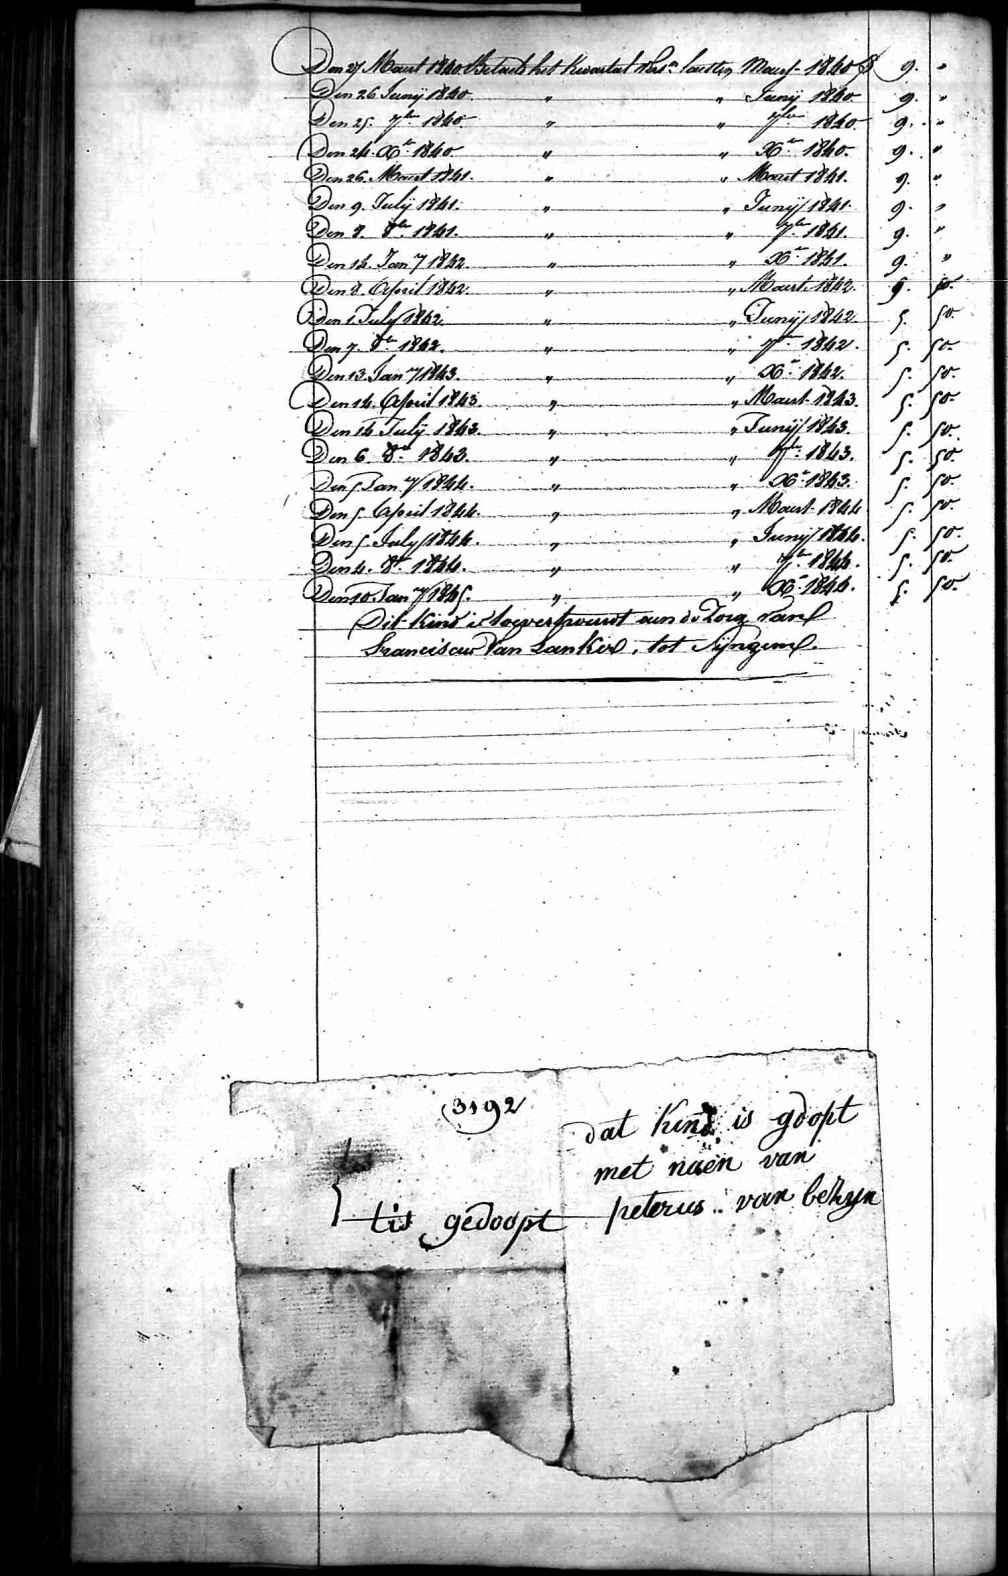 Den 27 Maart 1840. Betaelt het Kwartael Maart 1840 9. "
Den 26 Junij 1840. " " Junij 1840 9. "
Den 25. 7ber 1840. " " 7ber 1840. 9. "
Den 24. Xr 1840. " " Xr 1840. 9. "
Den 26. Maart 1841. " " Maart 1841. 9. "
Den 9. Julij 1841. " " Junij 1841. 9. "
Den 8. 8br 1841. " " 7br 1841. 9. "
Den 14 Jany 1842. " " Xr 1841. 9. "
Den 8. April 1842. " " Maart 1842. 5. 50.
Den 1. July 1842. " " Junij 1842. 5. 50.
Den 7. 8br 1842. " " 7br 1842. 5. 50.
Den 13. Jany 1843. " " Xr 1842. 5. 50.
Den 14. April 1843. " " Maart 1843. 5. 50.
Den 14 July 1843. " " Junij 1843. 5. 50.
Den 6. 8br 1843. " " 7br 1843. 5. 50.
Den 5 Jany 1844. " " Xr 1843. 5. 50.
Den 5. April 1844. " " Maart 1844. 5. 50.
Den 5. July 1844. " " Junij 1844. 5. 50.
Den 4. 8br 1844. " " 7br 1844. 5. 50.
Den 10. Jany 1845. " " Xr 1844. 5. 50.
Dit Kind is toevertrouwt aen de Zorg van
Franciscus Van Lanker, tot Sijngem.
3192
dat kind is gdopt
met naen van
tis gedoopt peterus van bekyn